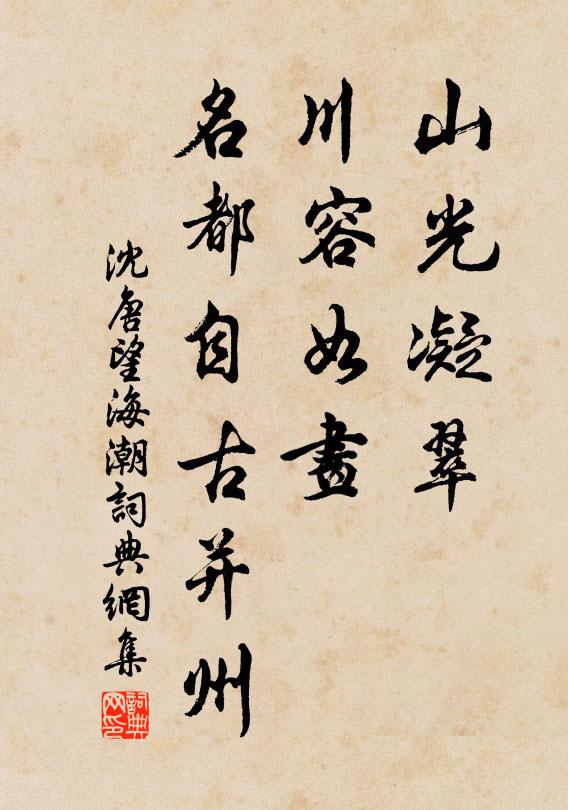 山光凝翠
川容如畫
名都自古并州
沈唐望海潮詞典網集
詞典网印